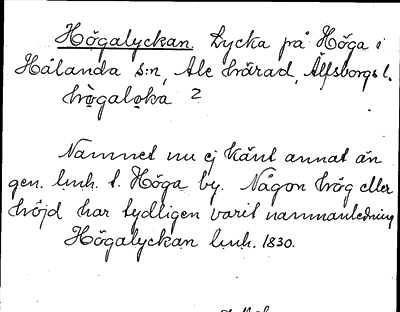 Högalyckan. Lycka på Höga i
Hålanda s:n, Ale härad, Älfsborgs l.
hògalo̥ka 2
Namnet nu ej känt annat än
gen. lmh. t. Höga by. Någon hög eller
höjd har tydligen varit namnanledning
Högalyckan lmh. 1830.